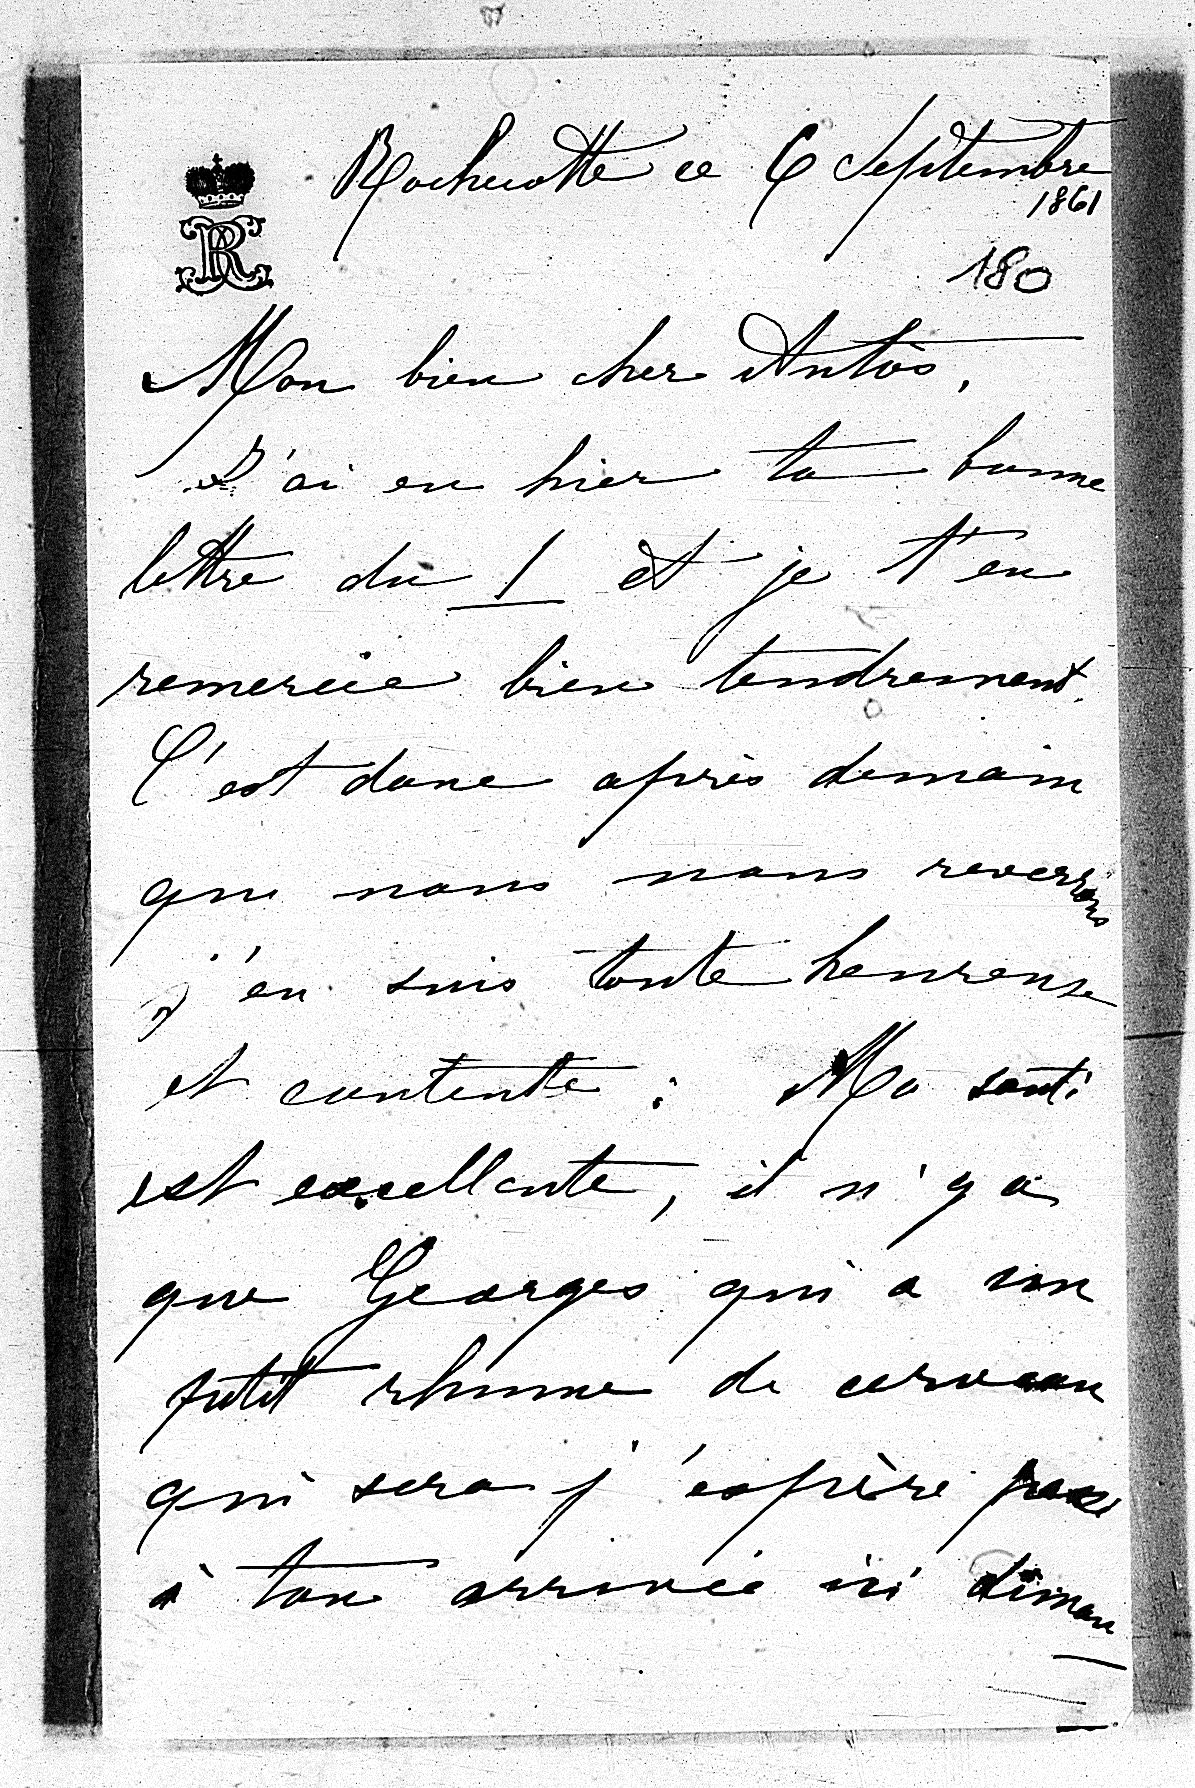 Rochecotte ce 6 Septembre
1861
180
R R
Mon bien cher Antoś,
J'ai eu hier ta bonne
lettre du 1 et je t'en
remercie bien tendrement.
C'est donc après demain
que nous nous reverrons
j'en suis toute heureuse
et contente : Ma santé
est excellente, il n'y a
que Georges qui a un
petit rhume de cerveau
qui sera j'espère passé
à ton arrivée ici diman